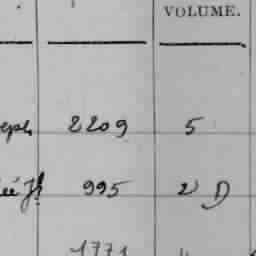 VOLUME.
2209 5
995 2 D
1771